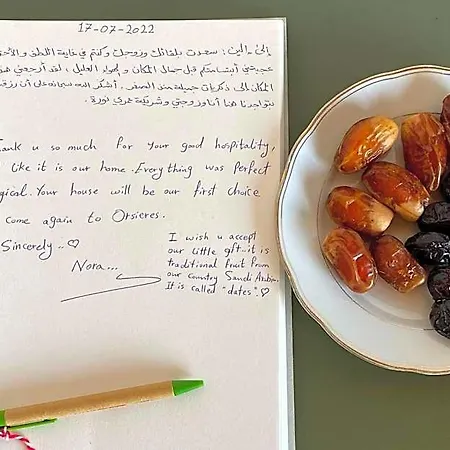 17-07-2022
إلى إلين: سعدت بلقائك وزوجك وكنتم في غاية اللطف و
قبل جمال المكان و الهواء العليل، لقد أرجعني هذا
المكان إلى ذكريات جميلة منذ الصغر. أشكر الله سبحانه على أن رزقنا
بتواجدنا هنا أنا وزوجتي وشريكة عمري نورة.
ank u so much for your good hospitality,
like it is our home. Everything was perfect
gical. Your house will be our first choice
come again to Orsieres.
Sincerely ..♡
Nora...
I wish u accept
our little gift..it is
traditional fruit from
our country Saudi Arabia.
It is called "dates".♡